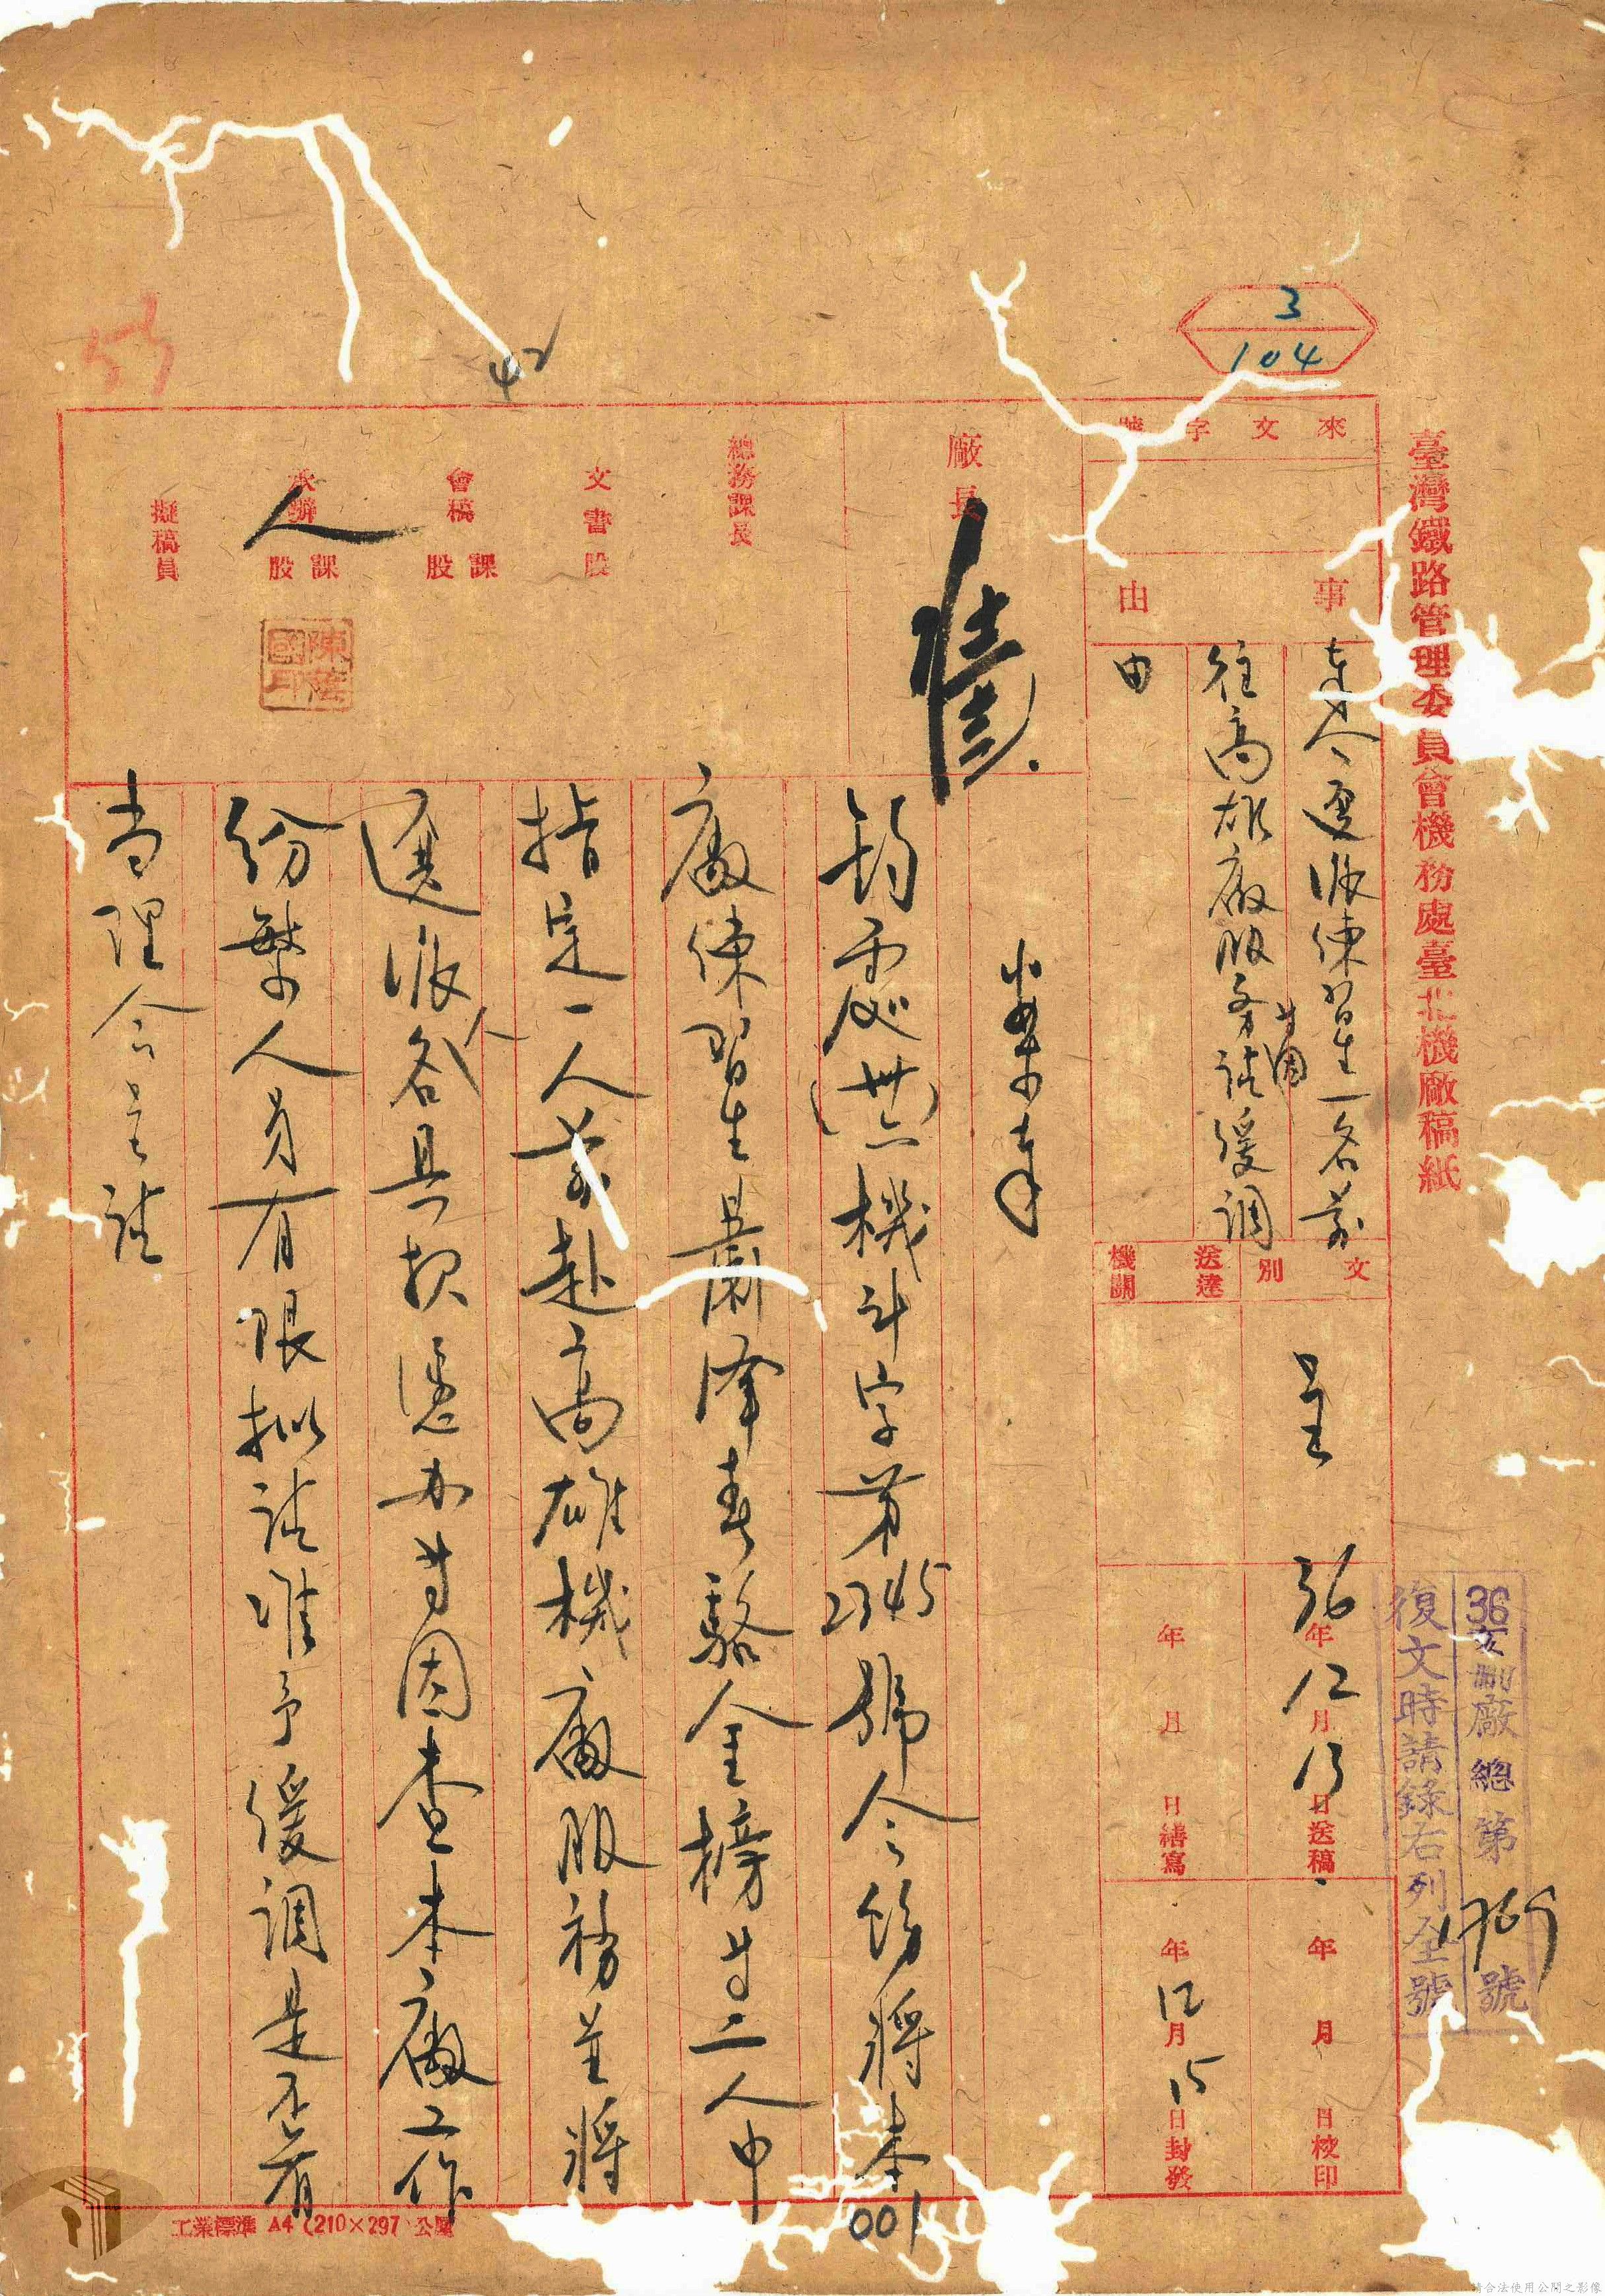 3
104
42
臺灣鐵路管理委員會機務處臺北機廠稿紙
36 廠總第1769號
復文時請錄右列全號
來文字號
事由
奉令選派練習生一名前
往高雄廠服務請緩調
由
文別
呈
送達機關
36年12月13日送稿
年月日繕寫
年月日校印
年12月15日封發
廠長
總務課長
文書股
會稿課股
承辦課股
擬稿員
案奉
鈞處(卅六)機計字第2345號令飭將本
廠練習生 澤春駱金榜等二人中
指定一人前赴高雄機廠服務並將
選派人名具報憑办等因查本廠工作
紛繁人員有限擬請准予緩調是否有
當理合呈請
工業標準 A4 (210×297)公厘
001
請合法使用公開之影像